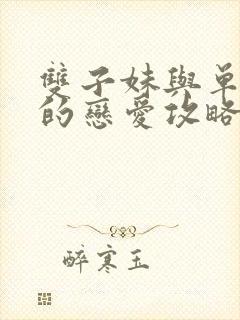 雙子妹與單
的戀愛攻略
醉寒玉